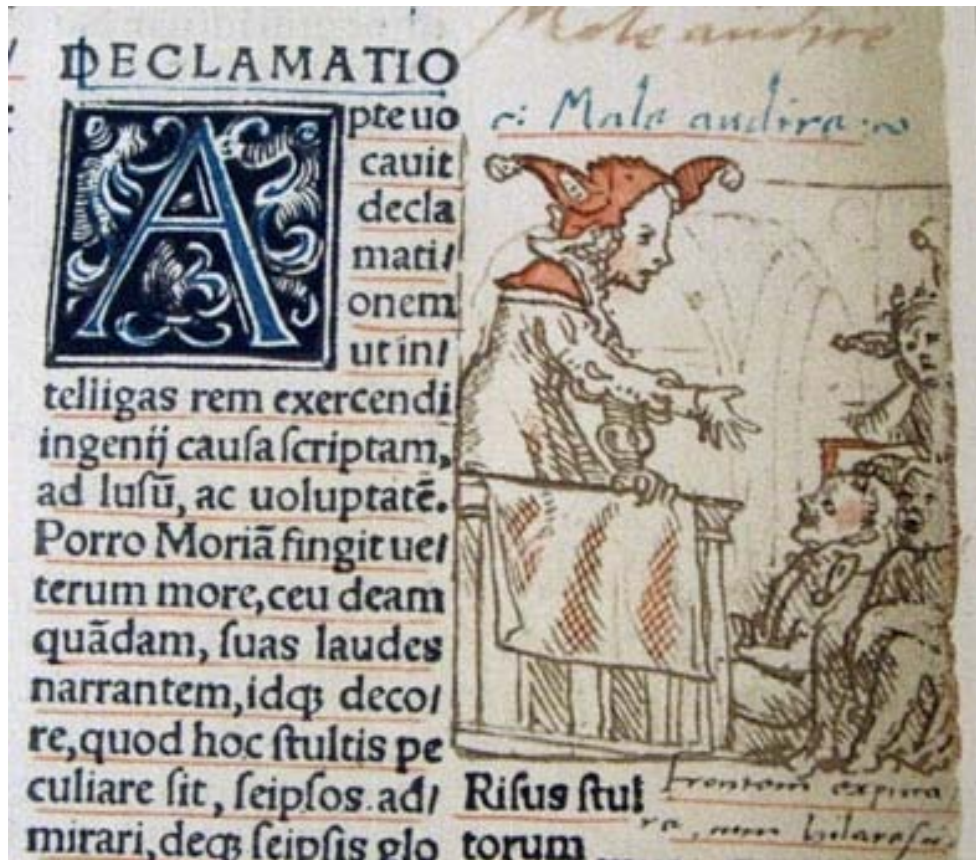 DECLAMATIO
Apte uo
cauit
decla
mati/
onem
ut in/
telligas rem exercendi
ingenij cauſa ſcriptam,
ad luſū, ac uoluptatē.
Porro Moriā fingit ue/
terum more, ceu deam
quādam, ſuas laudes
narrantem, idqꝫ deco/
re, quod hoc ſtultis pe
culiare ſit, ſeipſos ad/
mirari, deqꝫ ſeipſis glo
Male audire
c: Male audire
Riſus ſtul
torum
Frontem